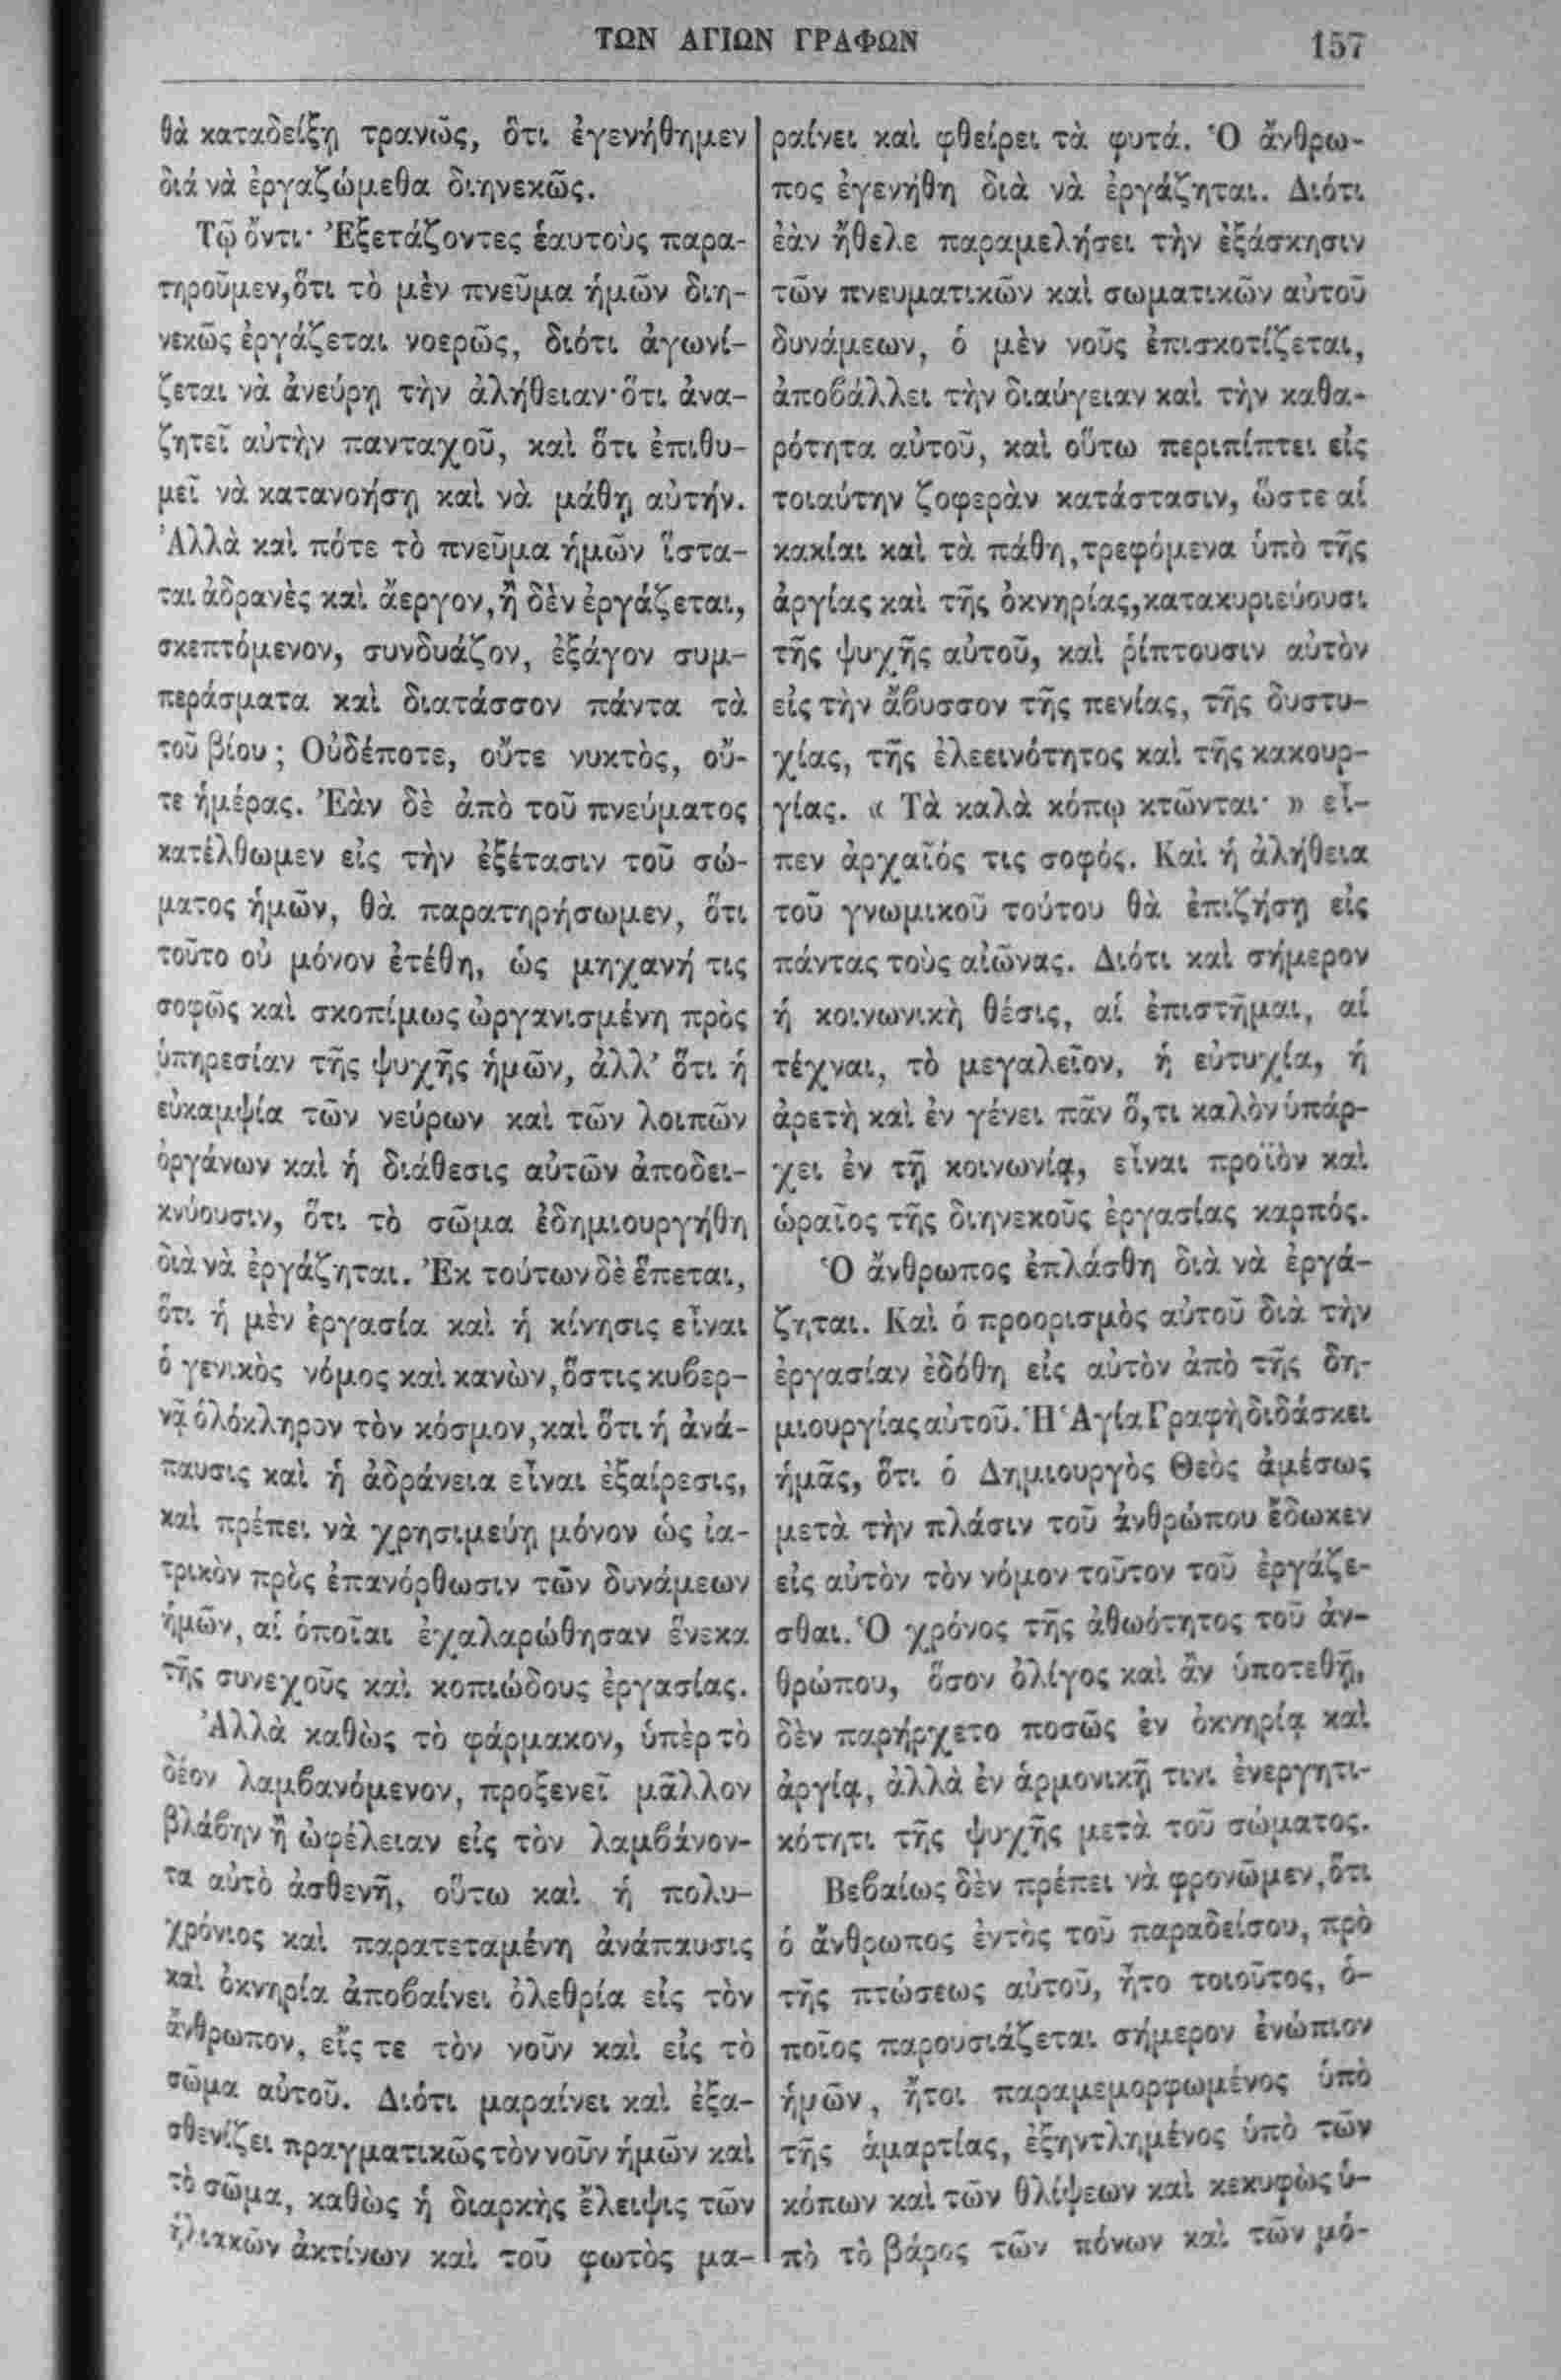 ΤΩΝ ΑΓΙΩΝ ΓΡΑΦΩΝ 157
θὰ καταδείξῃ τρανῶς, ὅτι ἐγενήθημεν
διὰ νὰ ἐργαζώμεθα διηνεκῶς.
Τῷ ὄντι· Ἐξετάζοντες ἑαυτοὺς παρα-
τηροῦμεν, ὅτι τὸ μὲν πνεῦμα ἡμῶν διη-
νεκῶς ἐργάζεται νοερῶς, διότι ἀγωνί-
ζεται νὰ ἀνεύρῃ τὴν ἀλήθειαν· ὅτι ἀνα-
ζητεῖ αὐτὴν πανταχοῦ, καὶ ὅτι ἐπιθυ-
μεῖ νὰ κατανοήσῃ καὶ νὰ μάθῃ αὐτήν.
Ἀλλὰ καὶ πότε τὸ πνεῦμα ἡμῶν ἵστα-
ται ἀδρανὲς καὶ ἄεργον, ἢ δὲν ἐργάζεται,
σκεπτόμενον, συνδυάζον, ἐξάγον συμ-
περάσματα καὶ διατάσσον πάντα τὰ
τοῦ βίου; Οὐδέποτε, οὔτε νυκτὸς, οὔ-
τε ἡμέρας. Ἐὰν δὲ ἀπὸ τοῦ πνεύματος
κατέλθωμεν εἰς τὴν ἐξέτασιν τοῦ σώ-
ματος ἡμῶν, θὰ παρατηρήσωμεν, ὅτι
τοῦτο οὐ μόνον ἐτέθη, ὡς μηχανή τις
σοφῶς καὶ σκοπίμως ὠργανισμένη πρὸς
ὑπηρεσίαν τῆς ψυχῆς ἡμῶν, ἀλλ’ ὅτι ἡ
εὐκαμψία τῶν νεύρων καὶ τῶν λοιπῶν
ὀργάνων καὶ ἡ διάθεσις αὐτῶν ἀποδει-
κνύουσιν, ὅτι τὸ σῶμα ἐδημιουργήθη
διὰ νὰ ἐργάζηται. Ἐκ τούτων δὲ ἕπεται,
ὅτι ἡ μὲν ἐργασία καὶ ἡ κίνησις εἶναι
ὁ γενικὸς νόμος καὶ κανὼν, ὅστις κυβερ-
νᾷ ὁλόκληρον τὸν κόσμον, καὶ ὅτι ἡ ἀνά-
παυσις καὶ ἡ ἀδράνεια εἶναι ἐξαίρεσις,
καὶ πρέπει νὰ χρησιμεύῃ μόνον ὡς ἰα-
τρικὸν πρὸς ἐπανόρθωσιν τῶν δυνάμεων
ἡμῶν, αἱ ὁποῖαι ἐχαλαρώθησαν ἕνεκα
τῆς συνεχοῦς καὶ κοπιώδους ἐργασίας.
Ἀλλὰ καθὼς τὸ φάρμακον, ὑπὲρ τὸ
δέον λαμβανόμενον, προξενεῖ μᾶλλον
βλάβην ἢ ὠφέλειαν εἰς τὸν λαμβάνον-
τα αὐτὸ ἀσθενῆ, οὕτω καὶ ἡ πολυ-
χρόνιος καὶ παρατεταμένη ἀνάπαυσις
καὶ ὀκνηρία ἀποβαίνει ὀλεθρία εἰς τὸν
ἄνθρωπον, εἴς τε τὸν νοῦν καὶ εἰς τὸ
σῶμα αὐτοῦ. Διότι μαραίνει καὶ ἐξα-
σθενίζει πραγματικῶς τὸν νοῦν ἡμῶν καὶ
τὸ σῶμα, καθὼς ἡ διαρκὴς ἔλειψις τῶν
ἡλιακῶν ἀκτίνων καὶ τοῦ φωτὸς μα-
ραίνει καὶ φθείρει τὰ φυτά. Ὁ ἄνθρω-
πος ἐγενήθη διὰ νὰ ἐργάζηται. Διότι
ἐὰν ἤθελε παραμελήσει τὴν ἐξάσκησιν
τῶν πνευματικῶν καὶ σωματικῶν αὐτοῦ
δυνάμεων, ὁ μὲν νοῦς ἐπισκοτίζεται,
ἀποβάλλει τὴν διαύγειαν καὶ τὴν καθα-
ρότητα αὐτοῦ, καὶ οὕτω περιπίπτει εἰς
τοιαύτην ζοφερὰν κατάστασιν, ὥστε αἱ
κακίαι καὶ τὰ πάθη, τρεφόμενα ὑπὸ τῆς
ἀργίας καὶ τῆς ὀκνηρίας, κατακυριεύουσι
τῆς ψυχῆς αὐτοῦ, καὶ ῥίπτουσιν αὐτὸν
εἰς τὴν ἄβυσσον τῆς πενίας, τῆς δυστυ-
χίας, τῆς ἐλεεινότητος καὶ τῆς κακουρ-
γίας. « Τὰ καλὰ κόπῳ κτῶνται· » εἶ-
πεν ἀρχαῖός τις σοφός. Καὶ ἡ ἀλήθεια
τοῦ γνωμικοῦ τούτου θὰ ἐπιζήσῃ εἰς
πάντας τοὺς αἰῶνας. Διότι καὶ σήμερον
ἡ κοινωνικὴ θέσις, αἱ ἐπιστῆμαι, αἱ
τέχναι, τὸ μεγαλεῖον, ἡ εὐτυχία, ἡ
ἀρετὴ καὶ ἐν γένει πᾶν ὅ,τι καλὸν ὑπάρ-
χει ἐν τῇ κοινωνίᾳ, εἶναι προϊὸν καὶ
ὡραῖος τῆς διηνεκοῦς ἐργασίας καρπός.
Ὁ ἄνθρωπος ἐπλάσθη διὰ νὰ ἐργά-
ζηται. Καὶ ὁ προορισμὸς αὐτοῦ διὰ τὴν
ἐργασίαν ἐδόθη εἰς αὐτὸν ἀπὸ τῆς δη-
μιουργίας αὐτοῦ. Ἡ Ἁγία Γραφὴ διδάσκει
ἡμᾶς, ὅτι ὁ Δημιουργὸς Θεὸς ἀμέσως
μετὰ τὴν πλάσιν τοῦ ἀνθρώπου ἔδωκεν
εἰς αὐτὸν τὸν νόμον τοῦτον τοῦ ἐργάζε-
σθαι. Ὁ χρόνος τῆς ἀθωότητος τοῦ ἀν-
θρώπου, ὅσον ὀλίγος καὶ ἂν ὑποτεθῇ,
δὲν παρήρχετο ποσῶς ἐν ὀκνηρίᾳ καὶ
ἀργίᾳ, ἀλλὰ ἐν ἁρμονικῇ τινι ἐνεργητι-
κότητι τῆς ψυχῆς μετὰ τοῦ σώματος.
Βεβαίως δὲν πρέπει νὰ φρονῶμεν, ὅτι
ὁ ἄνθρωπος ἐντὸς τοῦ παραδείσου, πρὸ
τῆς πτώσεως αὐτοῦ, ἦτο τοιοῦτος, ὁ-
ποῖος παρουσιάζεται σήμερον ἐνώπιον
ἡμῶν, ἤτοι παραμεμορφωμένος ὑπὸ
τῆς ἁμαρτίας, ἐξηντλημένος ὑπὸ τῶν
κόπων καὶ τῶν θλίψεων καὶ κεκυφὼς ὑ-
πὸ τὸ βάρος τῶν πόνων καὶ τῶν μό-